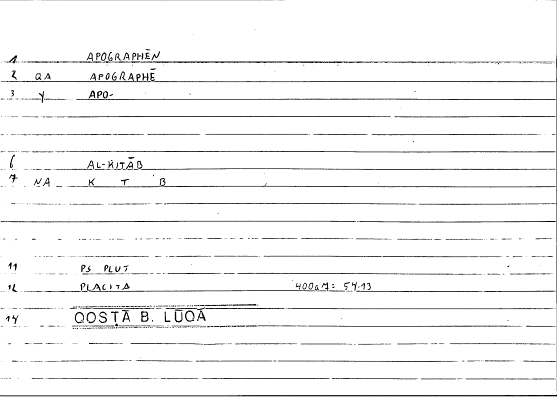 1 APOGRAPHĒN
2 QA APOGRAPHĒ
3 Y APO-
6 AL-KITĀB
7 NA K T B
11 PS PLUT
12 PLACITA 400a7: 54.13
14 QOSṬĀ B. LŪQĀ